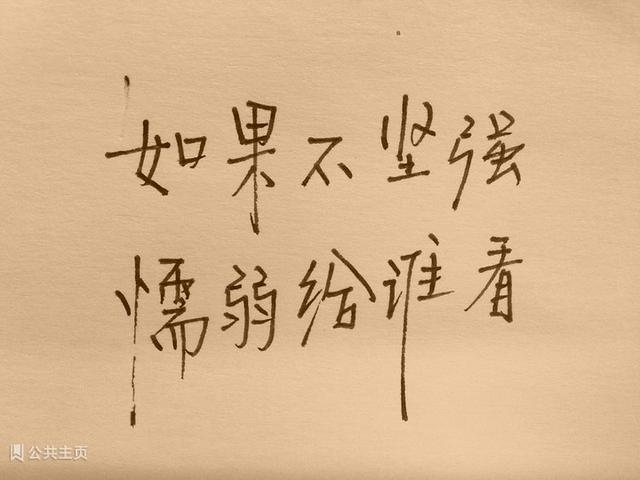 如果不坚强
懦弱给谁看
公共主页